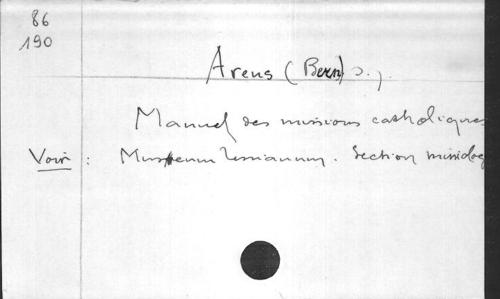 86
190
Arens (Bern) S.J.
Manuel des missions catholiques
Voir : Museum Lessianum. Section missiolog